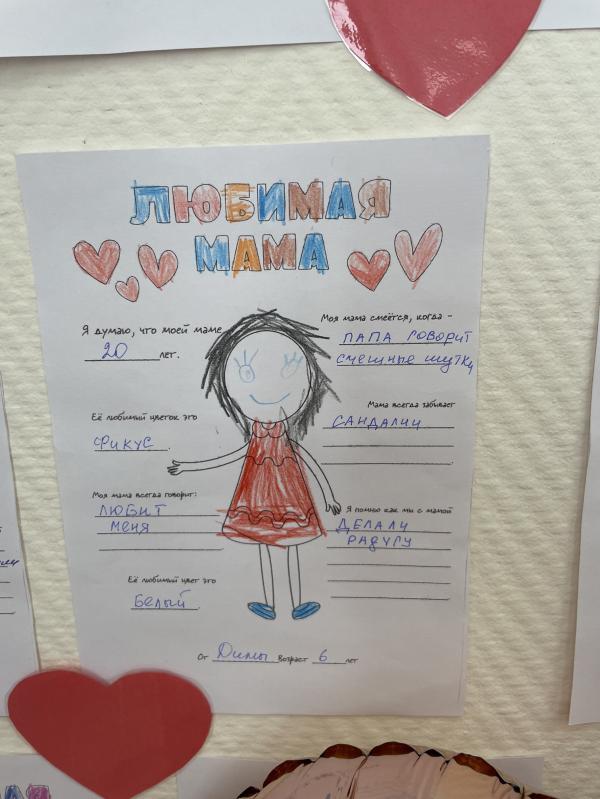 ЛЮБИМАЯ
МАМА
Я думаю, что моей маме
20 лет.
Моя мама смеётся, когда -
ПАПА ГОВОРИТ
СМЕШНЫЕ ШУТКИ
Её любимый цветок это
ФИКУС.
Мама всегда забивает
САНДАЛИИ
Моя мама всегда говорит:
ЛЮБИТ
МЕНЯ
Я помню как мы с мамой
ДЕЛАЛИ
РАДУГУ
Её любимый цвет это
БЕЛЫЙ.
От Димы Возраст 6 лет